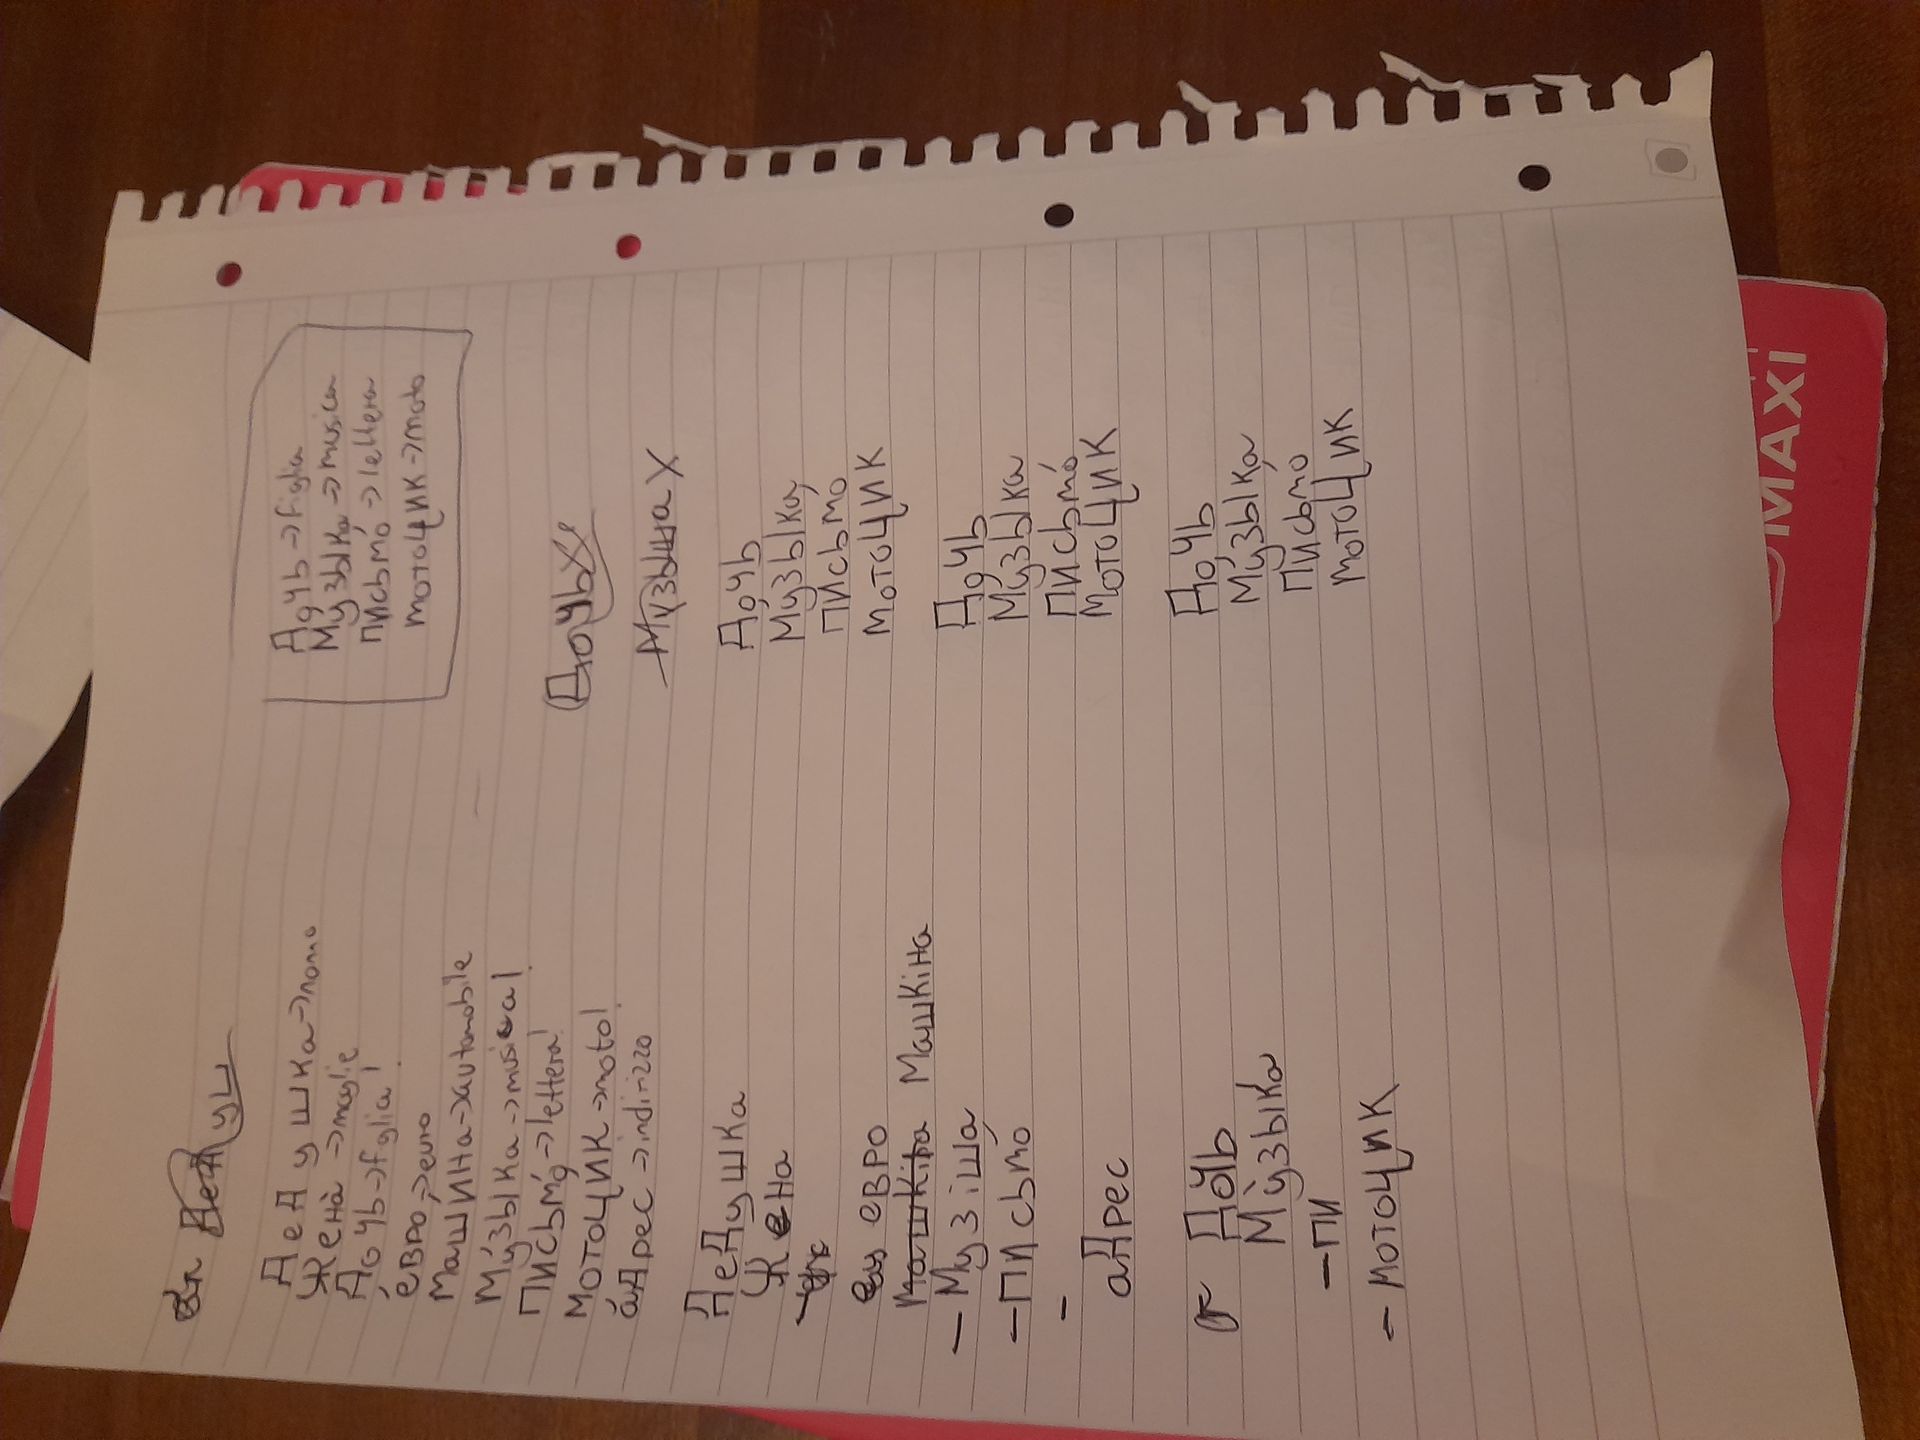 ДедушКа->nonno
Женà->moglie
Дочь->figlia!
éвро->euro
МашИНа->automobile
Мýзыка->musica!
ПИсьмó->lettera!
мотоЦИК->moto!
áдрес->indirizzo
ДеДушКа
Жена
евро
МашКіна
-Музіша
-ПИсьмó
-
аДрес
Дочь
Мýзыка
-ПИ
-МотоцИК
Дочь->figlia
Мýзыка->musica
ПИсьмó->lettera
мотоЦИК->moto
Дочь
МузыНа X
Дочь
Мýзыка
ПИсьмó
мотоЦИК
Дочь
Мýзыка
ПИсьмó
мотоЦИК
Дочь
Мýзыка
ПИсьмó
мотоЦИК
MAXI